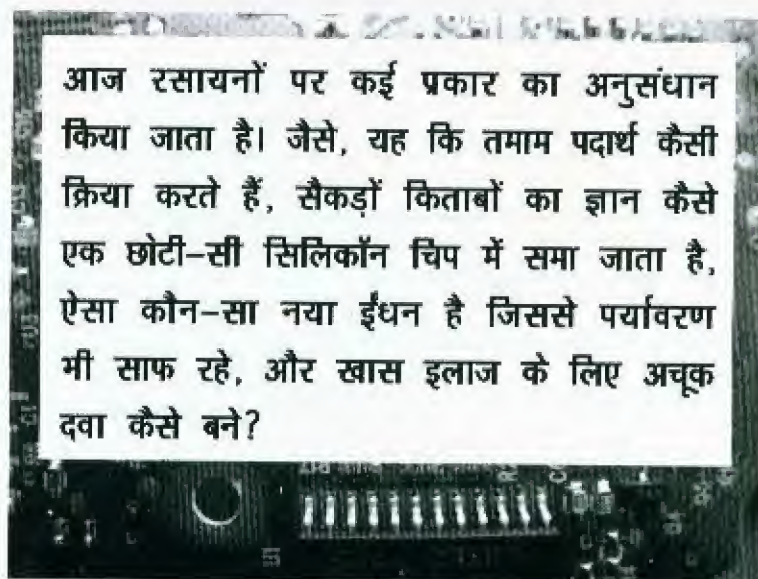 आज रसायनों पर कई प्रकार का अनुसंधान
किया जाता है। जैसे, यह कि तमाम पदार्थ कैसी
क्रिया करते हैं, सैकड़ों किताबों का ज्ञान कैसे
एक छोटी-सी सिलिकॉन चिप में समा जाता है,
ऐसा कौन-सा नया ईंधन है जिससे पर्यावरण
भी साफ रहे, और खास इलाज के लिए अचूक
दवा कैसे बने?